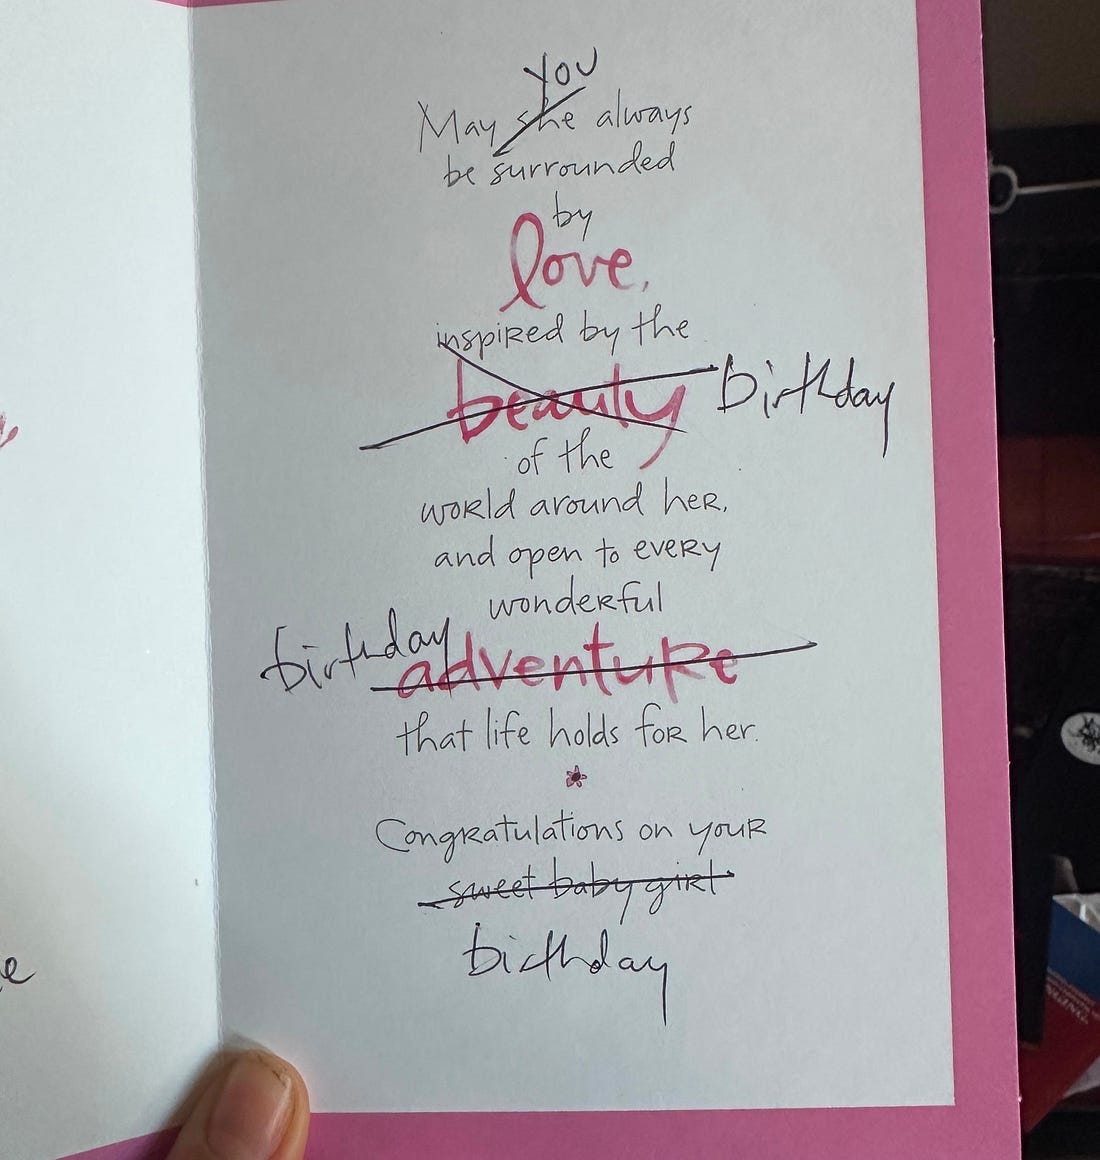 you
May she always
be surrounded
by
love,
inspired by the
beauty birthday
of the
world around her,
and open to every
wonderful
birthday adventure
that life holds for her.
Congratulations on your
sweet baby girl
birthday